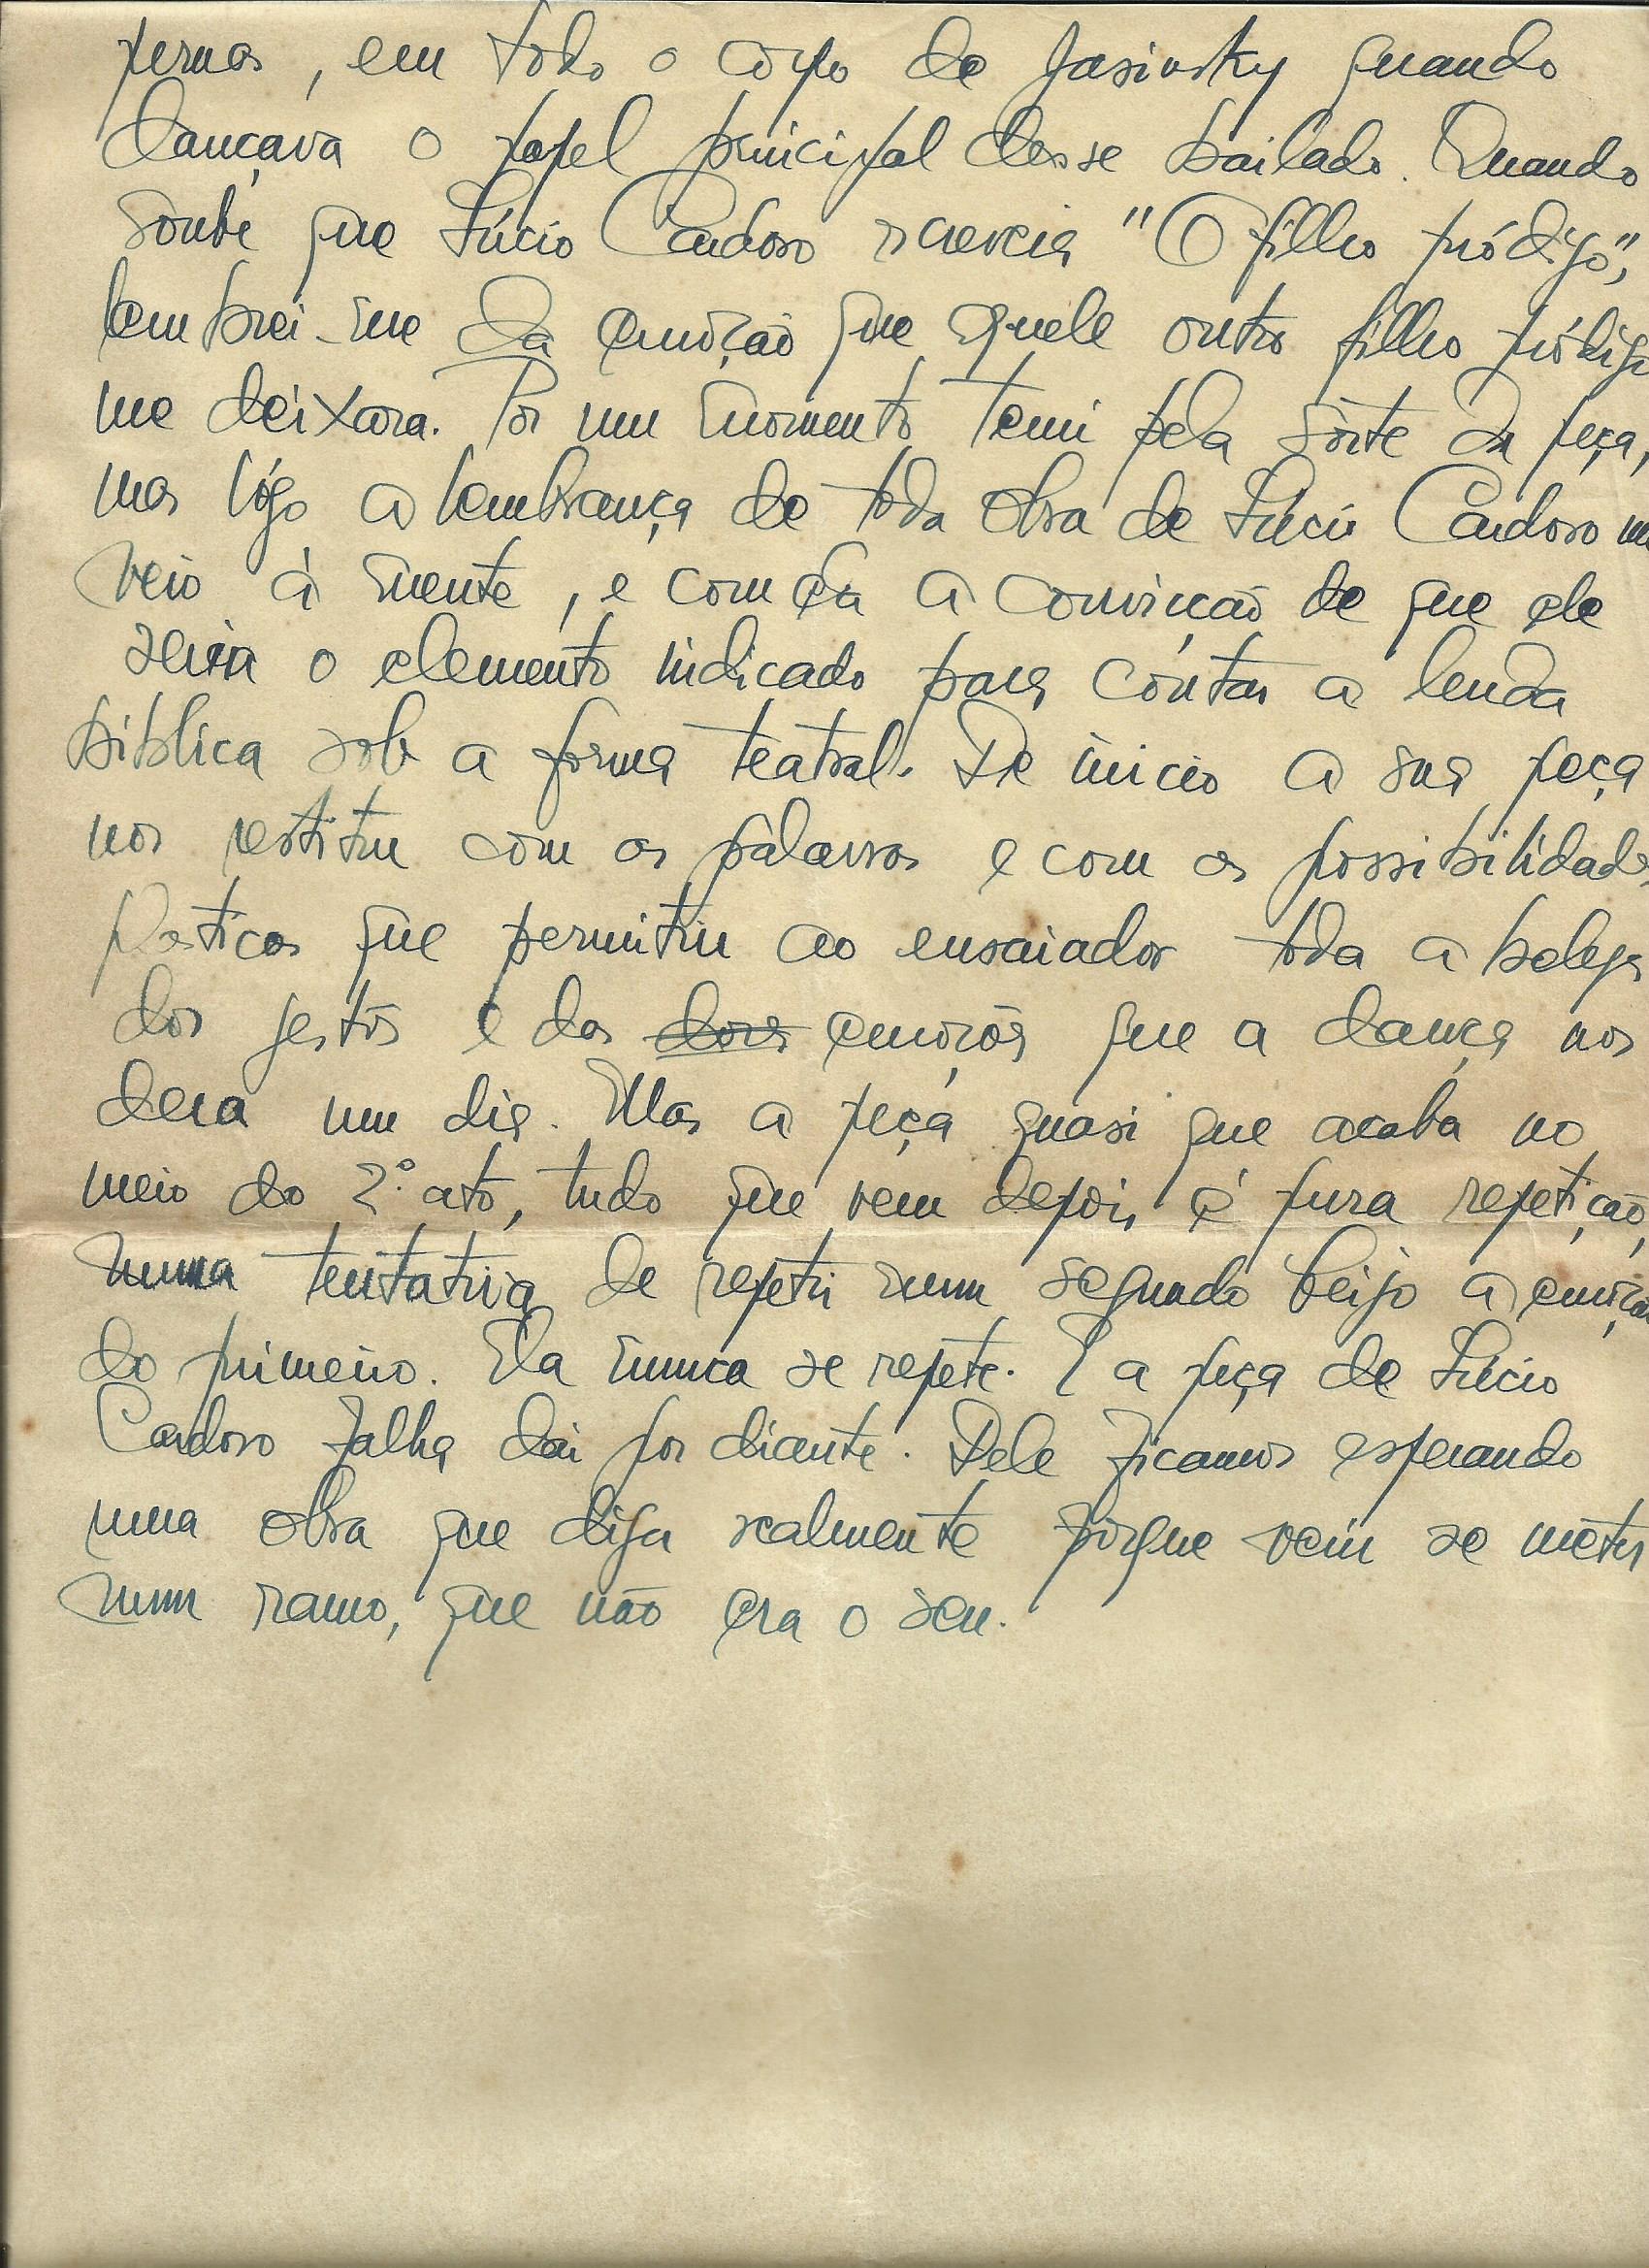 pernas, em todo o corpo de Jasinsky quando
dançava o papel principal desse bailado. Quando
soube que Lúcio Cardoso escrevia "O filho pródigo",
lembrei-me da emoção que aquele outro filho pródigo
me deixara. Por um momento temi pela sorte da peça,
mas lógo a lembrança de toda obra de Lúcio Cardoso me
veio à mente, e com ela a convicção de que ele
seria o elemento indicado para contar a lenda
biblica sob a forma teatral. De inicio a sua peça
nos restitue com as palavras e com as possibilidades
poéticas que permitiu ao ensaiador toda a beleza
dos gestos e das emoções que a dança nos
dera um dia. Mas a peça quasi que acaba no
meio do 2º ato, tudo que vem depois é pura repetição,
numa tentativa de repetir num segundo beijo a emoção
do primeiro. Ela nunca se repete. E a peça de Lúcio
Cardoso falha dai por diante. Dele ficamos esperando
uma obra que diga realmente porque veiu se meter
num ramo, que não era o seu.